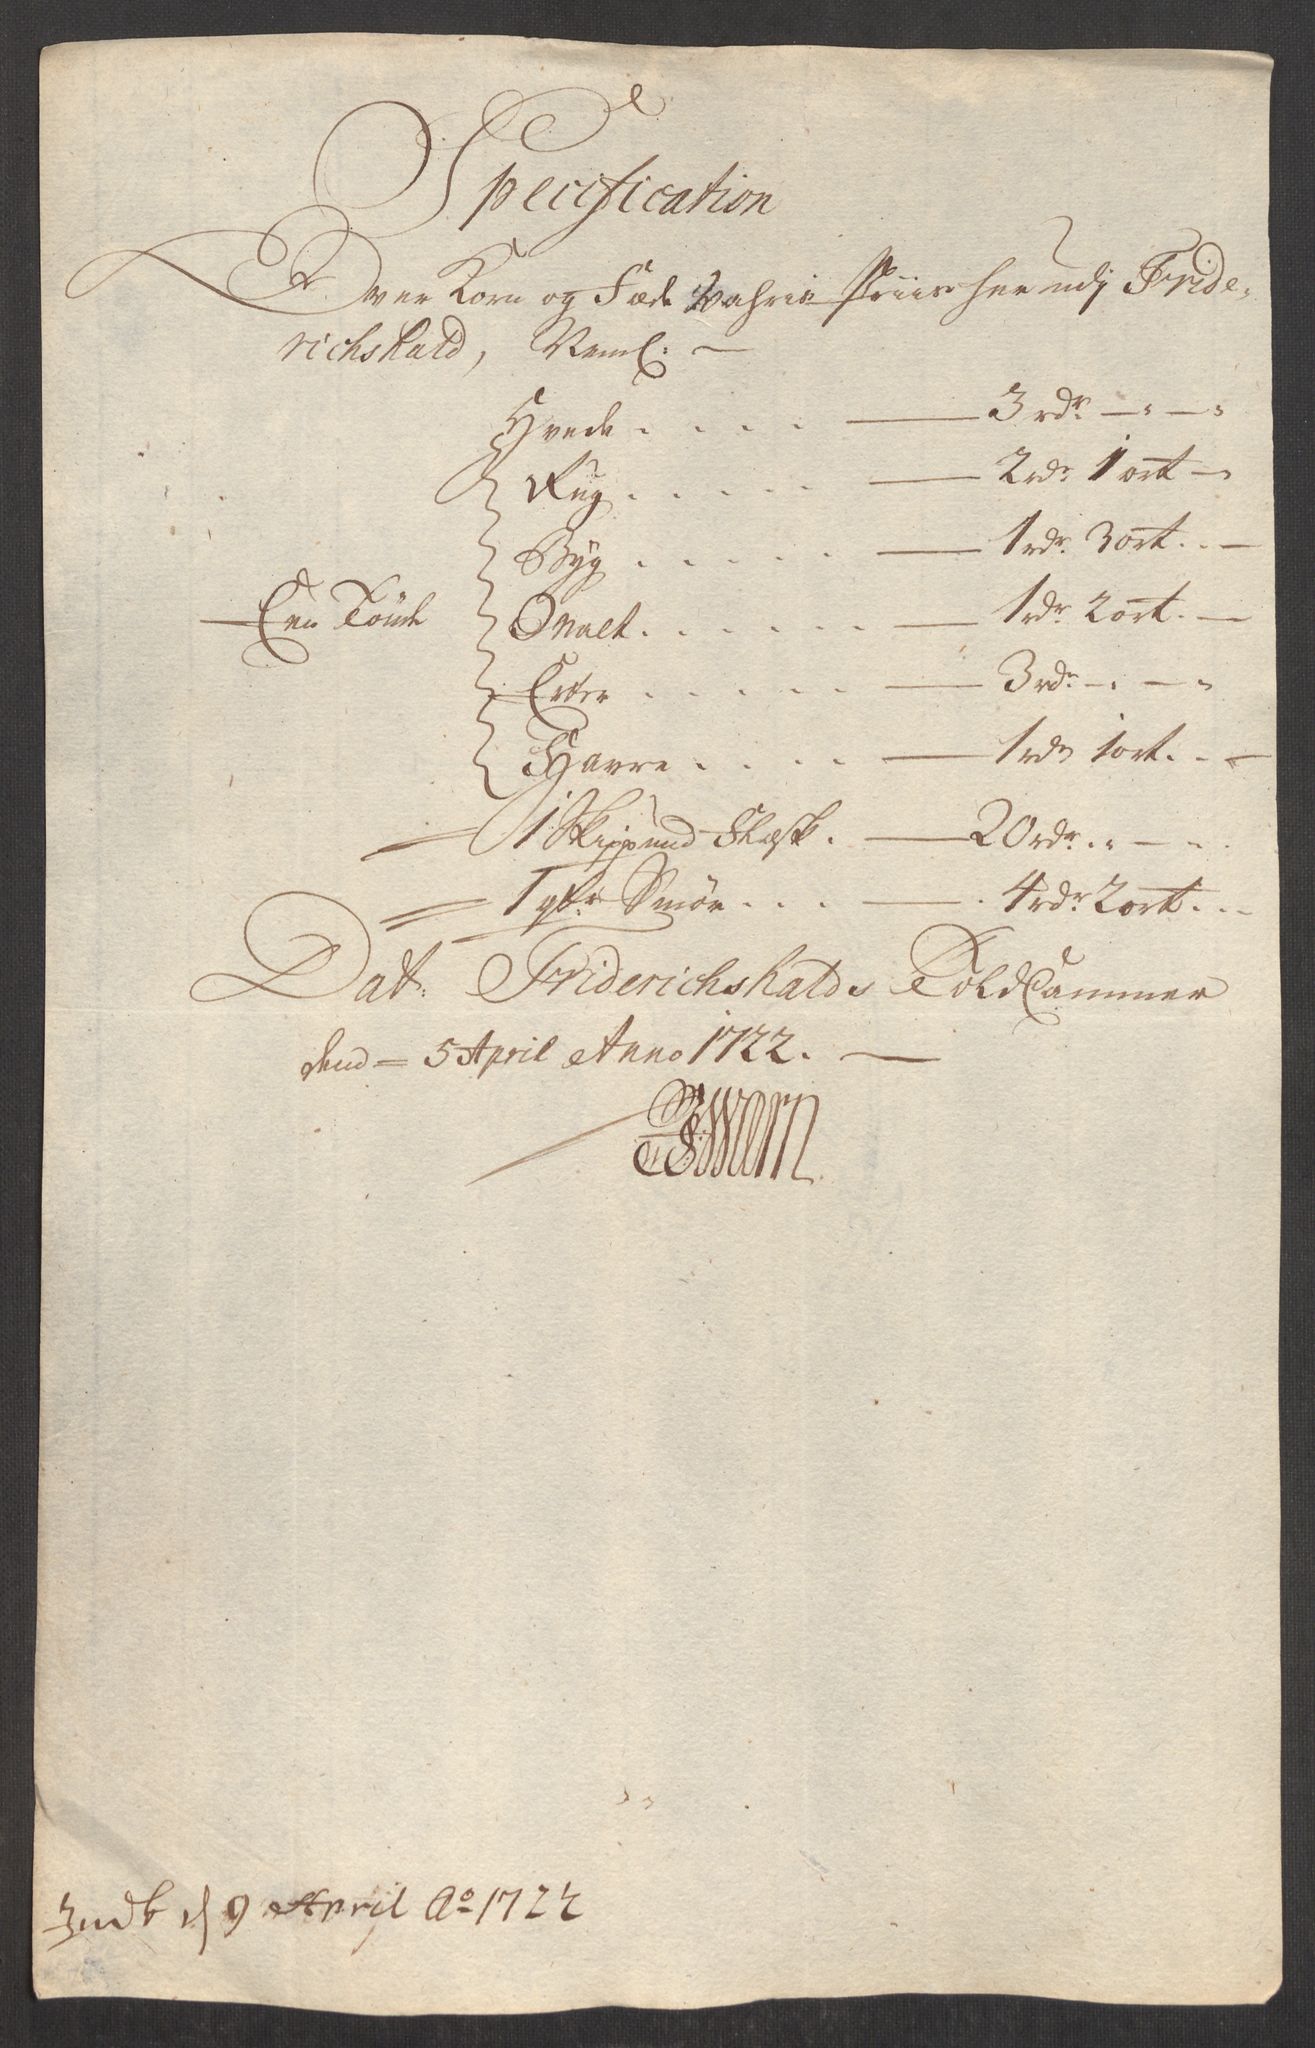 Specification
Over Korn og Fæde Wahris Priis her udj Fride-
richshald, Neml:
Hvede . . . . — 3 rdr — " — "
Rug . . . . . — 2 rdr 1 ort —
Byg . . . . . — 1 rdr 3 ort. —
En Tönde
Malt . . . . . . — 1 rdr 2 ort. —
Erter . . . . . — 3 rdr — " — "
Havre . . . . — 1 rdr 1 ort. —
1 Skippund Flesk . — 20 rdr. " — "
1 Smör . . . — 4 rdr 2 ort. —
Dat: Friderichshalds ToldCammer
dend = 5 April Anno 1722. —
9 April Ao 1722